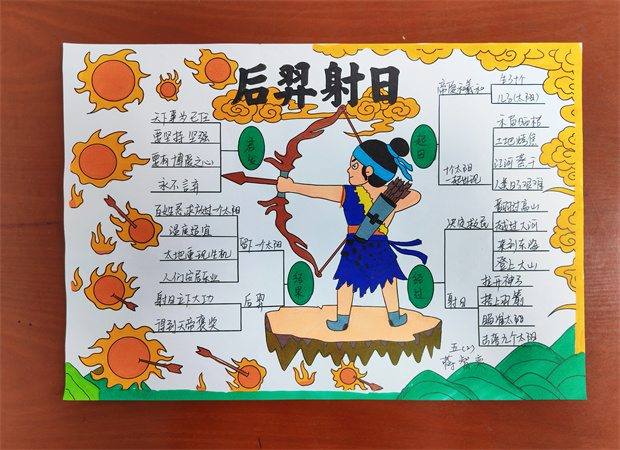 后羿射日
起因
帝俊与羲和
生了十个
儿子(太阳)
十个太阳
一起出现
禾苗晒枯
土地烤焦
江河蒸干
人类日子艰难
经过
决定救民
翻过高山
越过大河
来到东海
登上大山
射日
拉开神弓
搭上羽箭
瞄准太阳
击落九个太阳
结果
留下一个太阳
百姓恳求放过一个太阳
温度适宜
大地重现生机
人们安居乐业
后羿
射日立下大功
得到天帝褒奖
启发
天下事为己任
要坚持坚强
要有博爱之心
永不言弃
五(2)